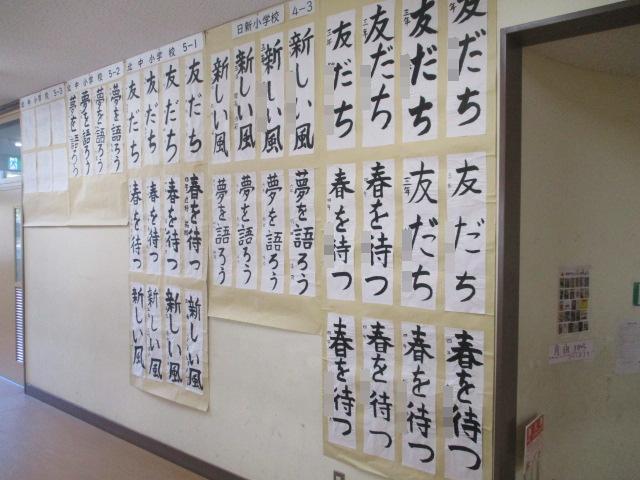 小学校 5-3
北中小学校 5-2
夢を語ろう
夢を語ろう
夢を語ろう
夢を語ろう
北中小学校 5-1
友だち
友だち
友だち
友だち
春を待つ
春を待つ
春を待つ
春を待つ
新しい風
新しい風
新しい風
新しい風
日新小学校 4-3
新しい風
新しい風
新しい風
新しい風
夢を語ろう
夢を語ろう
夢を語ろう
夢を語ろう
友だち
三年
友だち
三年
友だち
三年
友だち
三年
友だち
友だち
三年
春を待つ
春を待つ
春を待つ
春を待つ
春を待つ
春を待つ